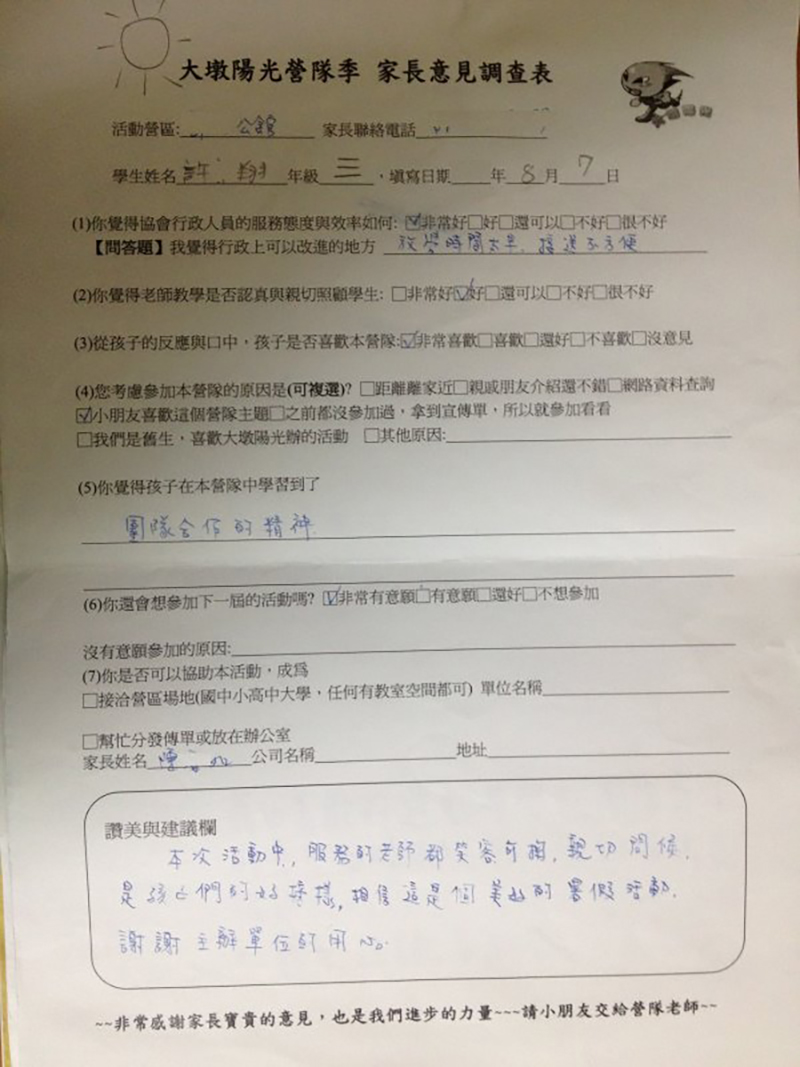 大墩陽光營隊季 家長意見調查表
活動營區: 公館 家長聯絡電話
學生姓名 許 翔 年級 三 ，填寫日期 年 8 月 7 日
(1)你覺得協會行政人員的服務態度與效率如何: ☑非常好□好□還可以□不好□很不好
【問答題】我覺得行政上可以改進的地方 放學時間太早，接送不方便
(2)你覺得老師教學是否認真與親切照顧學生: □非常好☑好□還可以□不好□很不好
(3)從孩子的反應與口中，孩子是否喜歡本營隊:☑非常喜歡□喜歡□還好□不喜歡□沒意見
(4)您考慮參加本營隊的原因是(可複選)? □距離離家近□親戚朋友介紹還不錯□網路資料查詢
☑小朋友喜歡這個營隊主題□之前都沒參加過，拿到宣傳單，所以就參加看看
□我們是舊生，喜歡大墩陽光辦的活動 □其他原因:
(5)你覺得孩子在本營隊中學習到了
團隊合作的精神
(6)你還會想參加下一屆的活動嗎? ☑非常有意願□有意願□還好□不想參加
沒有意願參加的原因:
(7)你是否可以協助本活動，成為
□接洽營區場地(國中小高中大學，任何有教室空間都可) 單位名稱
□幫忙分發傳單或放在辦公室
家長姓名 公司名稱 地址
讚美與建議欄
本次活動中，服務的老師都笑容可掬，親切問候，
是孩子們的好榜樣，相信這是個美好的暑假活動，
謝謝主辦單位的用心。
~~非常感謝家長寶貴的意見，也是我們進步的力量~~~請小朋友交給營隊老師~~